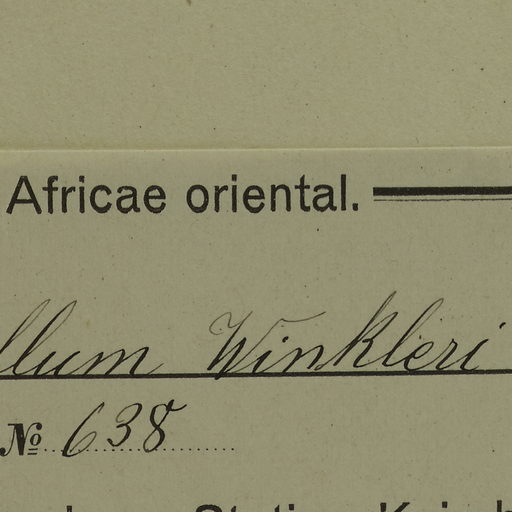 Africae oriental.
llum Winkleri
№ 638